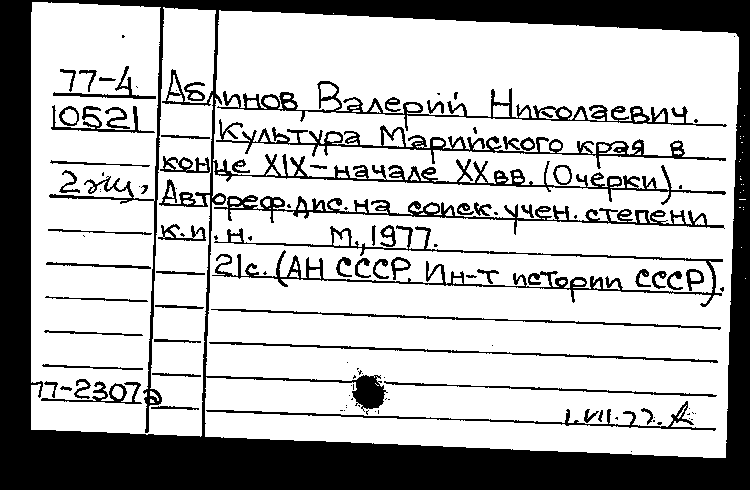 77-4 Аблинов, Валерий Николаевич.
10521 Культура Марийского края в
конце XIX-начале XX вв. (Очерки).
2 экз. Автореф. дис. на соиск. учен. степени
к.и.н. М., 1977.
21с. (АН СССР. Ин-т истории СССР).
77-2307а
1.VII.77.